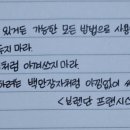 있거든 가능한 모든 방법으로 사용
두지 마라.
처럼 아껴쓰지 마라.
하려는 백만장자처럼 아낌없이 써
<브렌단 프랜시스